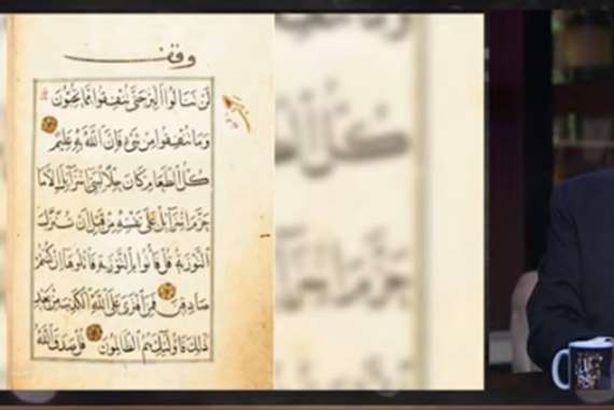 وقف
لن تنالوا البر حتى تنفقوا مما تحبون
وما تنفقوا من شيء فإن الله به عليم
كل الطعام كان حلا لبني إسرائيل إلا ما
حرم إسرائيل على نفسه من قبل أن تنزل
التوراة قل فأتوا بالتوراة فاتلوها إن كنتم
صادقين فمن افترى على الله الكذب من بعد
ذلك فأولئك هم الظالمون قل صدق الله